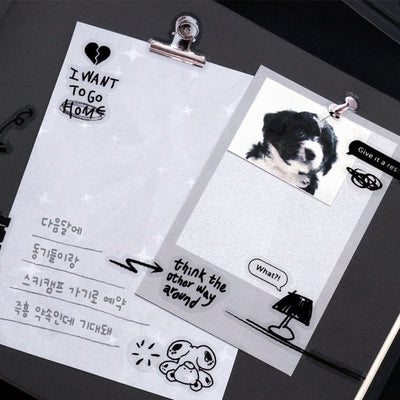 I WANT
TO GO
HOME
다음달에
동기들이랑
스키캠프 가기로 예약
즉흥 약속인데 기대돼
think the
other way
around
What?!
Give it a res